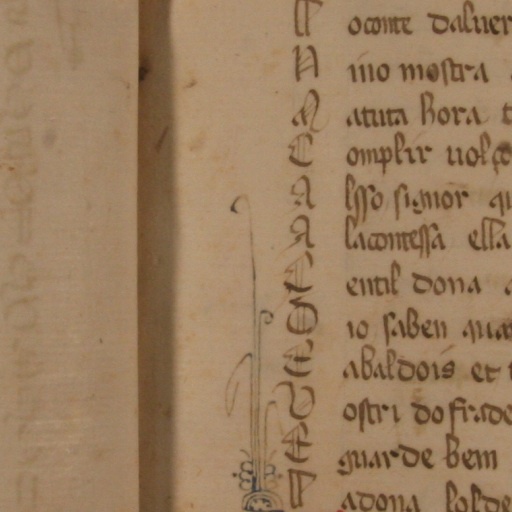 P oconte daluer
N uio mostra
M atuta hora t
C omplir uolço
A lsso signor qu
A lacontessa ella
G entil dona a
D io saben qua
E abaldois et
V ostri do frado
E guarde bem
M adona